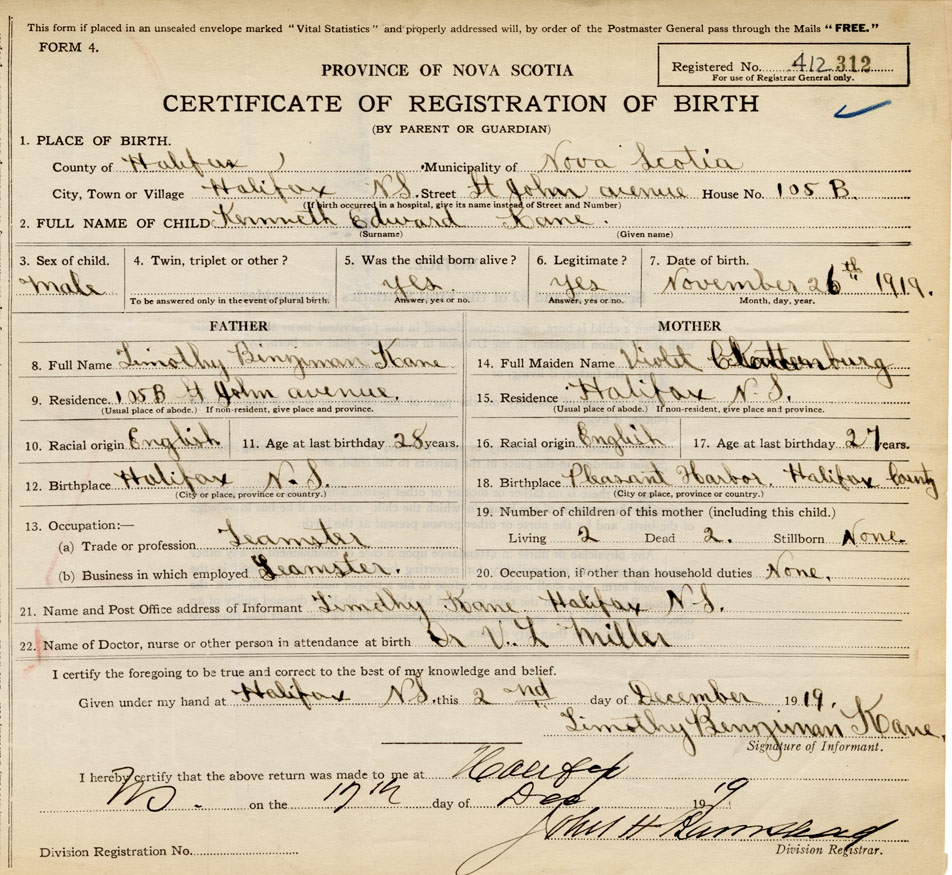 This form if placed in an unsealed envelope marked "Vital Statistics" and properly addressed will, by order of the Postmaster General pass through the Mails "FREE."
FORM 4.
Registered No. 412 312
For use of Registrar General only.
PROVINCE OF NOVA SCOTIA
CERTIFICATE OF REGISTRATION OF BIRTH
(BY PARENT OR GUARDIAN)
1. PLACE OF BIRTH.
County of Halifax Municipality of Nova Scotia
City, Town or Village Halifax N.S. Street St John avenue House No. 105 B.
(If birth occurred in a hospital, give its name instead of Street and Number)
2. FULL NAME OF CHILD Kenneth Edward Kane.
(Surname) (Given name)
3. Sex of child. 4. Twin, triplet or other? 5. Was the child born alive? 6. Legitimate? 7. Date of birth.
Male yes. yes November 26th 1919.
To be answered only in the event of plural birth. Answer, yes or no. Answer, yes or no. Month, day, year.
FATHER MOTHER
8. Full Name Timothy Binziman Kane 14. Full Maiden Name Violet Clattenburg
9. Residence. 105B St John avenue. 15. Residence Halifax N.S.
(Usual place of abode.) If non-resident, give place and province. (Usual place of abode.) If non-resident, give place and province.
10. Racial origin English 11. Age at last birthday 28 years. 16. Racial origin English 17. Age at last birthday 27 years.
12. Birthplace Halifax N.S. 18. Birthplace Pleasant Harbor. Halifax County
(City or place, province or country.) (City or place, province or country.)
13. Occupation:— 19. Number of children of this mother (including this child.)
(a) Trade or profession Teamster Living 2 Dead 2. Stillborn None.
(b) Business in which employed Teamster. 20. Occupation, if other than household duties None.
21. Name and Post Office address of Informant Timothy Kane Halifax N.S.
22. Name of Doctor, nurse or other person in attendance at birth Dr V. L Miller
I certify the foregoing to be true and correct to the best of my knowledge and belief.
Given under my hand at Halifax N.S. this 2nd day of December 1919.
Timothy Benziman Kane,
Signature of Informant.
I hereby certify that the above return was made to me at Halifax
NS. on the 17th day of Dec 1919
John H Barnstead
Division Registration No. Division Registrar.